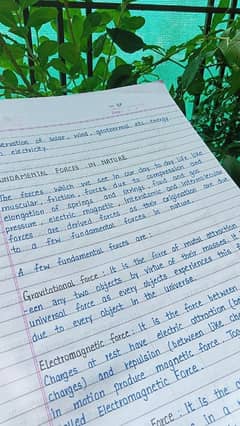 ervation of solar, wind, geothermal etc. energy
electricity.
NDAMENTAL FORCES IN NATURE
The forces which we see in our day to day life like
muscular, friction, forces due to compression and
elongation of springs and strings, fluid and gas
pressure, electric, magnetic, interatomic and intermolecular
forces are derived forces as their origination are due
to a few fundamental forces in nature.
A few fundamental forces are :
Gravitational force : It is the force of mutual attraction
een any two objects by virtue of their masses. It
universal force as every objects experiences this
due to every object in the universe.
Electromagnetic force : It is the force between
Charges at rest have electric attraction (be
charges) and repulsion (between like char
in motion produce magnetic force. Toge
lled Electromagnetic Force.
Force : It is the
in a